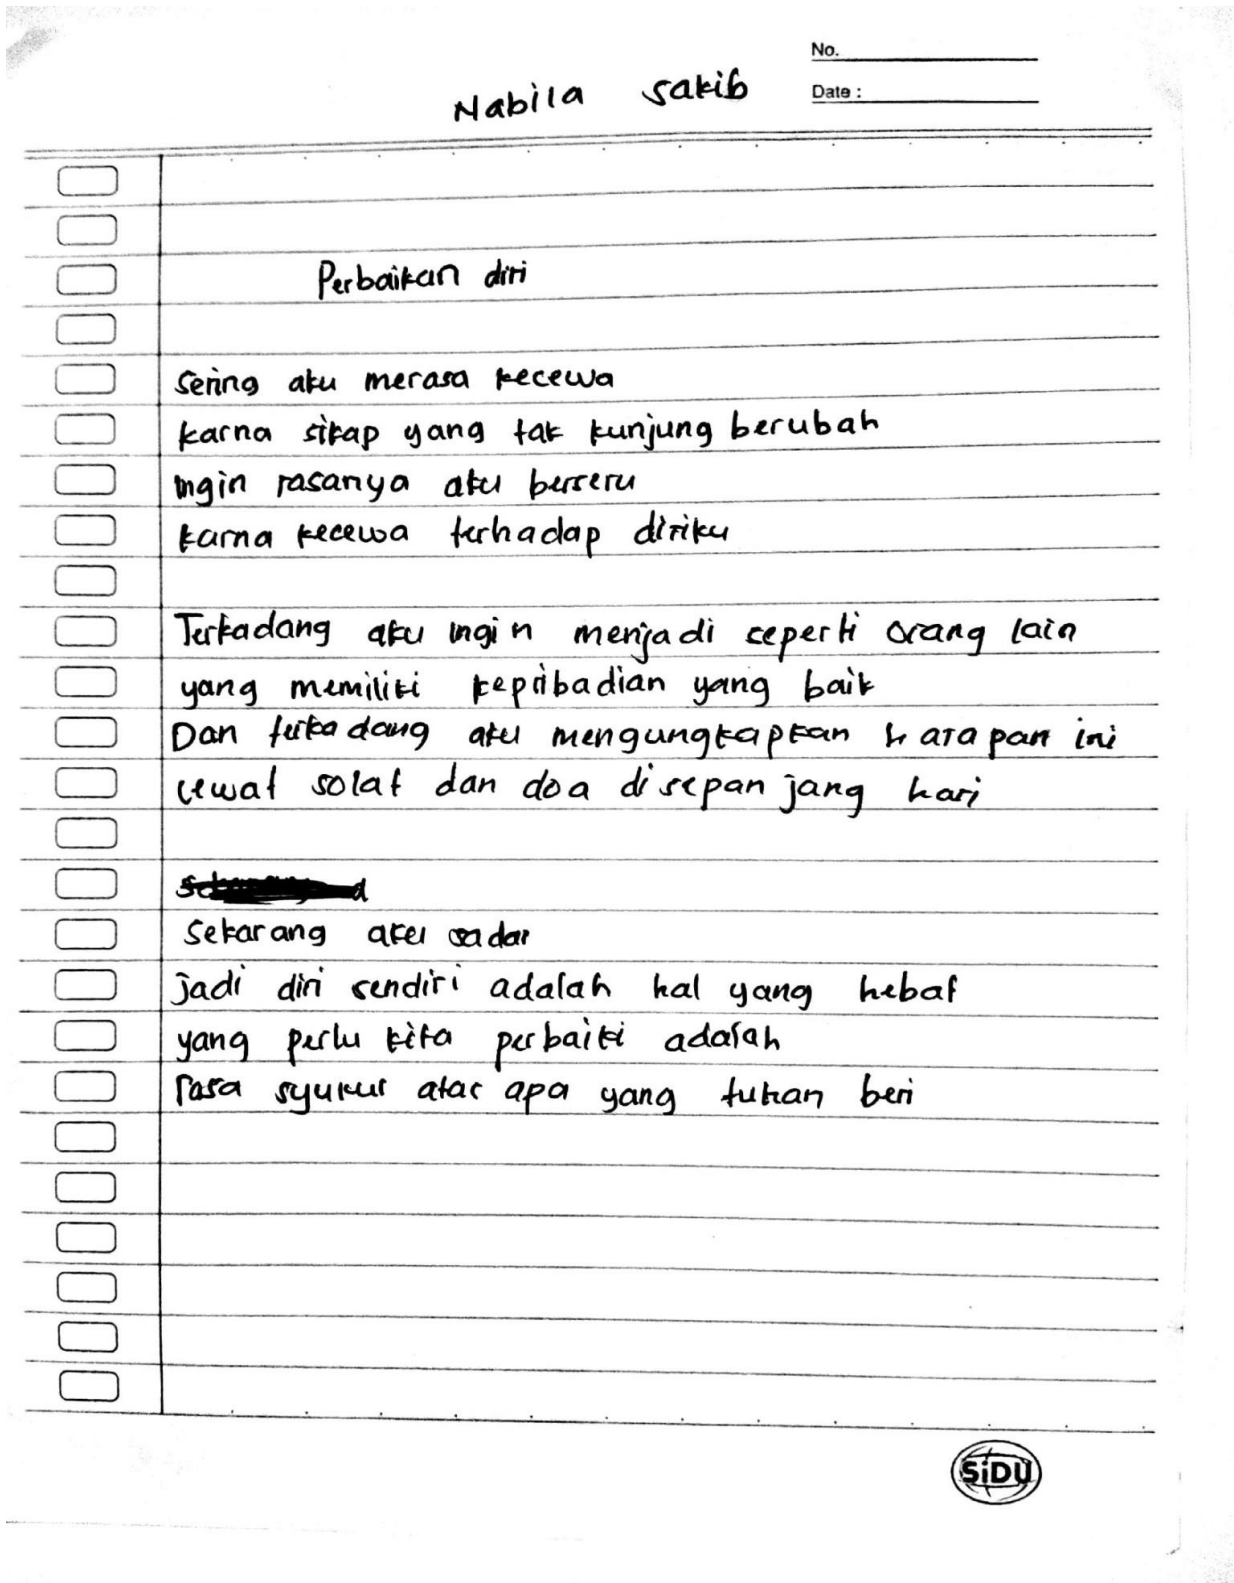 No.
Nabila Sakib
Date :
Perbaikan diri
Sering aku merasa kecewa
karna sikap yang tak kunjung berubah
ingin rasanya aku berseru
karna kecewa terhadap diriku
Terkadang aku ingin menjadi seperti orang lain
yang memiliki kepribadian yang baik
Dan terkadang aku mengungkapkan harapan ini
lewat solat dan doa disepanjang hari
Sekarang aku sadar
jadi diri sendiri adalah hal yang hebat
yang perlu kita perbaiki adalah
rasa syukur atas apa yang tuhan beri
SiDU